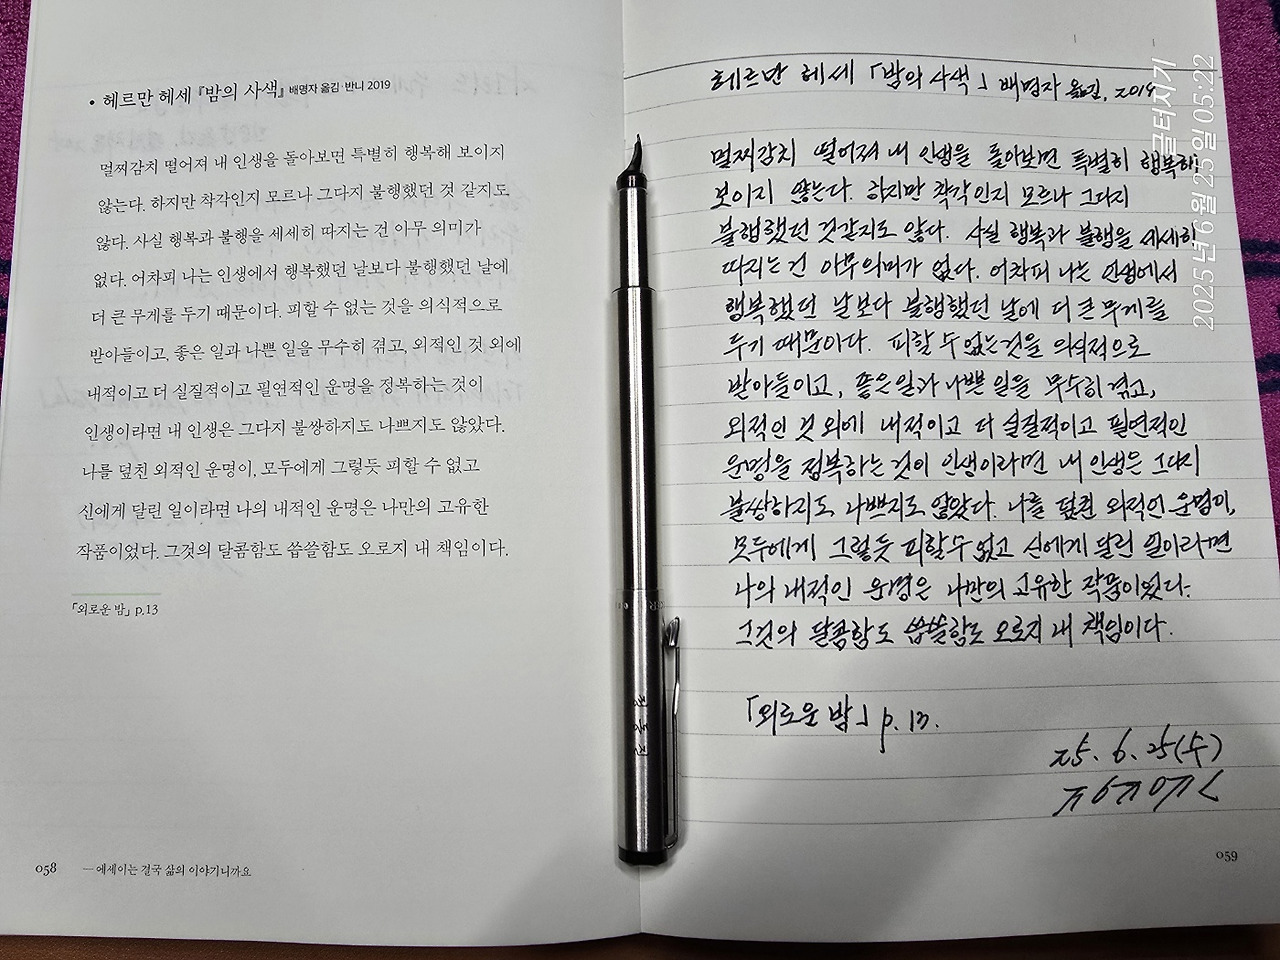 • 헤르만 헤세 『밤의 사색』 배명자 옮김·반니 2019
멀찌감치 떨어져 내 인생을 돌아보면 특별히 행복해 보이지
않는다. 하지만 착각인지 모르나 그다지 불행했던 것 같지도
않다. 사실 행복과 불행을 세세히 따지는 건 아무 의미가
없다. 어차피 나는 인생에서 행복했던 날보다 불행했던 날에
더 큰 무게를 두기 때문이다. 피할 수 없는 것을 의식적으로
받아들이고, 좋은 일과 나쁜 일을 무수히 겪고, 외적인 것 외에
내적이고 더 실질적이고 필연적인 운명을 정복하는 것이
인생이라면 내 인생은 그다지 불쌍하지도 나쁘지도 않았다.
나를 덮친 외적인 운명이, 모두에게 그렇듯 피할 수 없고
신에게 달린 일이라면 나의 내적인 운명은 나만의 고유한
작품이었다. 그것의 달콤함도 씁쓸함도 오로지 내 책임이다.
「외로운 밤」 p.13
058 — 에세이는 결국 삶의 이야기니까요
정동진
헤르만 헤세 「밤의 사색」 배명자 옮김, 2019
멀찌감치 떨어져 내 인생을 돌아보면 특별히 행복해
보이지 않는다. 하지만 착각인지 모르나 그다지
불행했던 것같지도 않다. 사실 행복과 불행을 세세히
따지는 건 아무의미가 없다. 어차피 나는 인생에서
행복했던 날보다 불행했던 날에 더 큰 무게를
두기 때문이다. 피할 수 없는 것을 의식적으로
받아들이고, 좋은 일과 나쁜 일을 무수히 겪고,
외적인 것 외에 내적이고 더 실질적이고 필연적인
운명을 정복하는 것이 인생이라면 내 인생은 그다지
불쌍하지도 나쁘지도 않았다. 나를 덮친 외적인 운명이,
모두에게 그렇듯 피할 수 없고 신에게 달린 일이라면
나의 내적인 운명은 나만의 고유한 작품이었다.
그것의 달콤함도 씁쓸함도 오로지 내 책임이다.
「외로운 밤」 p.13.
25. 6. 25(수)
059
글터지기
2025년 6월 25일 05:22